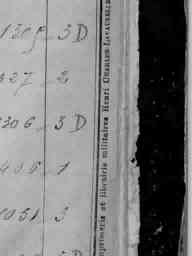 1309 3 D
327 2
1306 3 D
406 1
1051 3
Imprimerie et librairie militaires Henri CHARLES-LAVAUZELLE